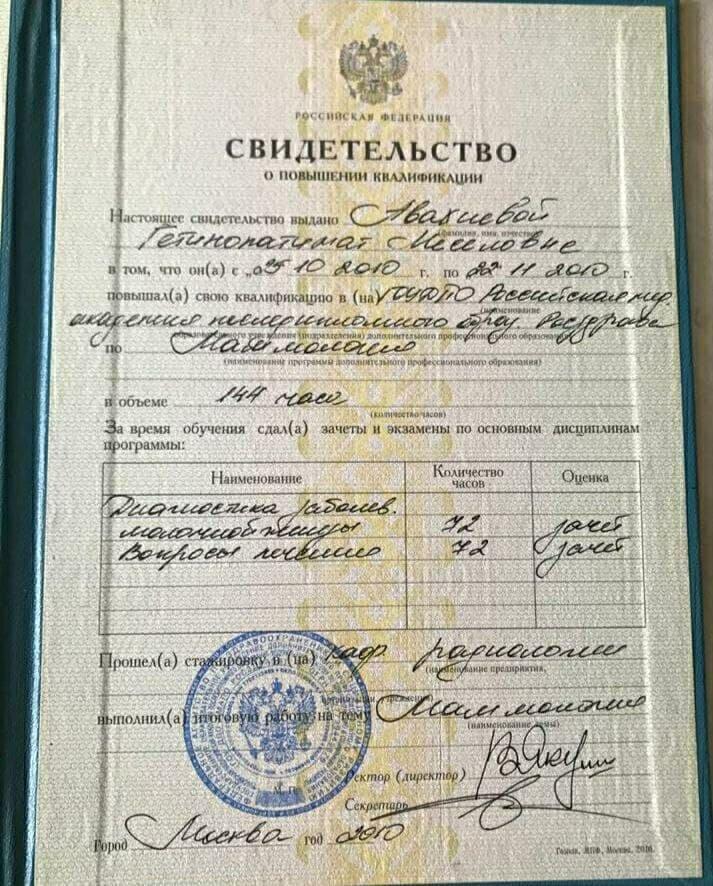 РОССИЙСКАЯ ФЕДЕРАЦИЯ
СВИДЕТЕЛЬСТВО
О ПОВЫШЕНИИ КВАЛИФИКАЦИИ
Настоящее свидетельство выдано Авакиевой
(фамилия, имя, отчество)
в том, что он(а) с „25 10 2010 г. по 22 11 2010 г.
повышал(а) свою квалификацию в (на) ГОУ ДПО Российская мед.
(наименование
академия последипломного образ. Росздрава
образовательного учреждения (подразделения) дополнительного профессионального образования)
по Маммология
(наименование программы дополнительного профессионального образования)
в объеме 144 часа
(количество часов)
За время обучения сдал(а) зачеты и экзамены по основным дисциплинам
программы:
Наименование Количество часов Оценка
Диагностика заболев.
молочной железы 72 зачет
Вопросы лечения 72 зачет
Прошел(а) стажировку в (на) каф. радиологии
(наименование предприятия,
организации, учреждения)
выполнил(а) итоговую работу на тему Маммология
(наименование темы)
М.П.
Ректор (директор)
Секретарь
Город Москва год 2010
Гознак, МПФ, Москва, 2010.